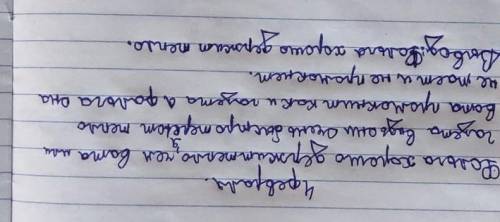 4 февраля.
Фольга хорошо держит тепло, чем вата или
газета ведь они очень быстро теряют тепло
вата промокнит как и газета а фольга она
не тает и не промокнет.
Вывод: Фольга хорошо держит тепло.